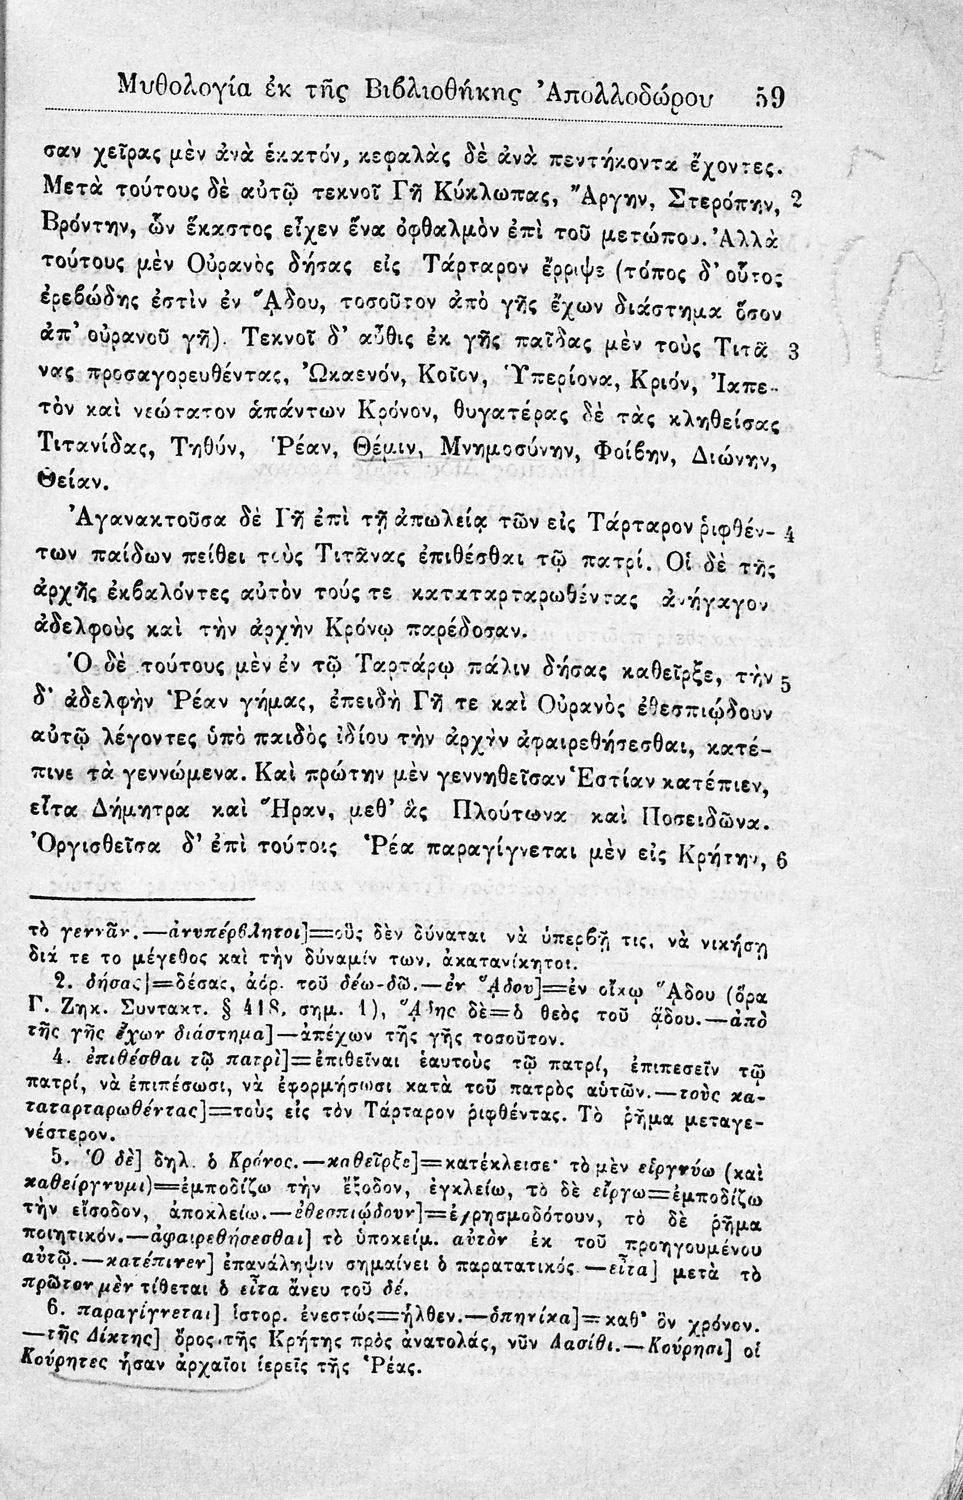 Μυθολογία ἐκ τῆς Βιβλιοθήκης Ἀπολλοδώρου 59
σαν χεῖρας μὲν ἀνὰ ἑκατόν, κεφαλὰς δὲ ἀνὰ πεντήκοντα ἔχοντες.
Μετὰ τούτους δὲ αὐτῷ τεκνοῖ Γῆ Κύκλωπας, Ἄργην, Στερόπην, 2
Βρόντην, ὧν ἕκαστος εἶχεν ἕνα ὀφθαλμὸν ἐπὶ τοῦ μετώπου. Ἀλλὰ
τούτους μὲν Οὐρανὸς δήσας εἰς Τάρταρον ἔρριψε (τόπος δ' οὗτος
ἐρεβώδης ἐστὶν ἐν Ἅδου, τοσοῦτον ἀπὸ γῆς ἔχων διάστημα ὅσον
ἀπ' οὐρανοῦ γῆ). Τεκνοῖ δ' αὖθις ἐκ γῆς παῖδας μὲν τοὺς Τιτᾶ 3
νας προσαγορευθέντας, Ὠκαενόν, Κοῖον, Ὑπερίονα, Κριόν, Ἰαπε-
τὸν καὶ νεώτατον ἁπάντων Κρόνον, θυγατέρας δὲ τὰς κληθείσας
Τιτανίδας, Τηθύν, Ῥέαν, Θέμιν, Μνημοσύνην, Φοίβην, Διώνην,
Θείαν.
Ἀγανακτοῦσα δὲ Γῆ ἐπὶ τῇ ἀπωλείᾳ τῶν εἰς Τάρταρον ῥιφθέν- 4
των παίδων πείθει τοὺς Τιτᾶνας ἐπιθέσθαι τῷ πατρί. Οἱ δὲ τῆς
ἀρχῆς ἐκβαλόντες αὐτὸν τούς τε καταταρταρωθέντας ἀνήγαγον
ἀδελφοὺς καὶ τὴν ἀρχὴν Κρόνῳ παρέδοσαν.
Ὁ δὲ τούτους μὲν ἐν τῷ Ταρτάρῳ πάλιν δήσας καθεῖρξε, τὴν 5
δ' ἀδελφὴν Ῥέαν γήμας, ἐπειδὴ Γῆ τε καὶ Οὐρανὸς ἐθεσπιῴδουν
αὐτῷ λέγοντες ὑπὸ παιδὸς ἰδίου τὴν ἀρχὴν ἀφαιρεθήσεσθαι, κατέ-
πινε τὰ γεννώμενα. Καὶ πρώτην μὲν γεννηθεῖσαν Ἑστίαν κατέπιεν,
εἶτα Δήμητρα καὶ Ἥραν, μεθ' ἃς Πλούτωνα καὶ Ποσειδῶνα.
Ὀργισθεῖσα δ' ἐπὶ τούτοις Ῥέα παραγίγνεται μὲν εἰς Κρήτην, 6
τὸ γεννᾶν.—ἀνυπέρβλητοι]=οὓς δὲν δύναται νὰ ὑπερβῇ τις, νὰ νικήσῃ
διά τε το μέγεθος καὶ τὴν δύναμίν των, ἀκατανίκητοι.
2. δήσας]=δέσας, ἀόρ. τοῦ δέω-δῶ.—ἐν Ἅδου]=ἐν οἴκῳ Ἅδου (ὅρα
Γ. Ζηκ. Συντακτ. § 418, σημ. 1), Ἅδης δὲ=ὁ θεὸς τοῦ ᾅδου.—ἀπὸ
τῆς γῆς ἔχων διάστημα]—ἀπέχων τῆς γῆς τοσοῦτον.
4. ἐπιθέσθαι τῷ πατρὶ]=ἐπιθεῖναι ἑαυτοὺς τῷ πατρί, ἐπιπεσεῖν τῷ
πατρί, νὰ ἐπιπέσωσι, νὰ ἐφορμήσωσι κατὰ τοῦ πατρὸς αὐτῶν.—τοὺς κα-
ταταρταρωθέντας]=τοὺς εἰς τὸν Τάρταρον ῥιφθέντας. Τὸ ῥῆμα μεταγε-
νέστερον.
5. Ὁ δὲ] δηλ. ὁ Κρόνος.—καθεῖρξε]=κατέκλεισε· τὸ μὲν εἱργνύω (καὶ
καθείργνυμι)=ἐμποδίζω τὴν ἔξοδον, ἐγκλείω, τὸ δὲ εἴργω=ἐμποδίζω
τὴν εἴσοδον, ἀποκλείω.—ἐθεσπιῴδουν]=ἐχρησμοδότουν, τὸ δὲ ῥῆμα
ποιητικόν.—ἀφαιρεθήσεσθαι] τὸ ὑποκείμ. αὐτὸν ἐκ τοῦ προηγουμένου
αὐτῷ.—κατέπινεν] ἐπανάληψιν σημαίνει ὁ παρατατικός.—εἶτα] μετὰ τὸ
πρῶτον μὲν τίθεται ὁ εἶτα ἄνευ τοῦ δέ.
6. παραγίγνεται] ἱστορ. ἐνεστώς=ἦλθεν.—ὁπηνίκα]=καθ' ὃν χρόνον.
—τῆς Δίκτης] ὄρος τῆς Κρήτης πρὸς ἀνατολάς, νῦν Λασίθι.—Κούρησι] οἱ
Κούρητες ἦσαν ἀρχαῖοι ἱερεῖς τῆς Ῥέας.